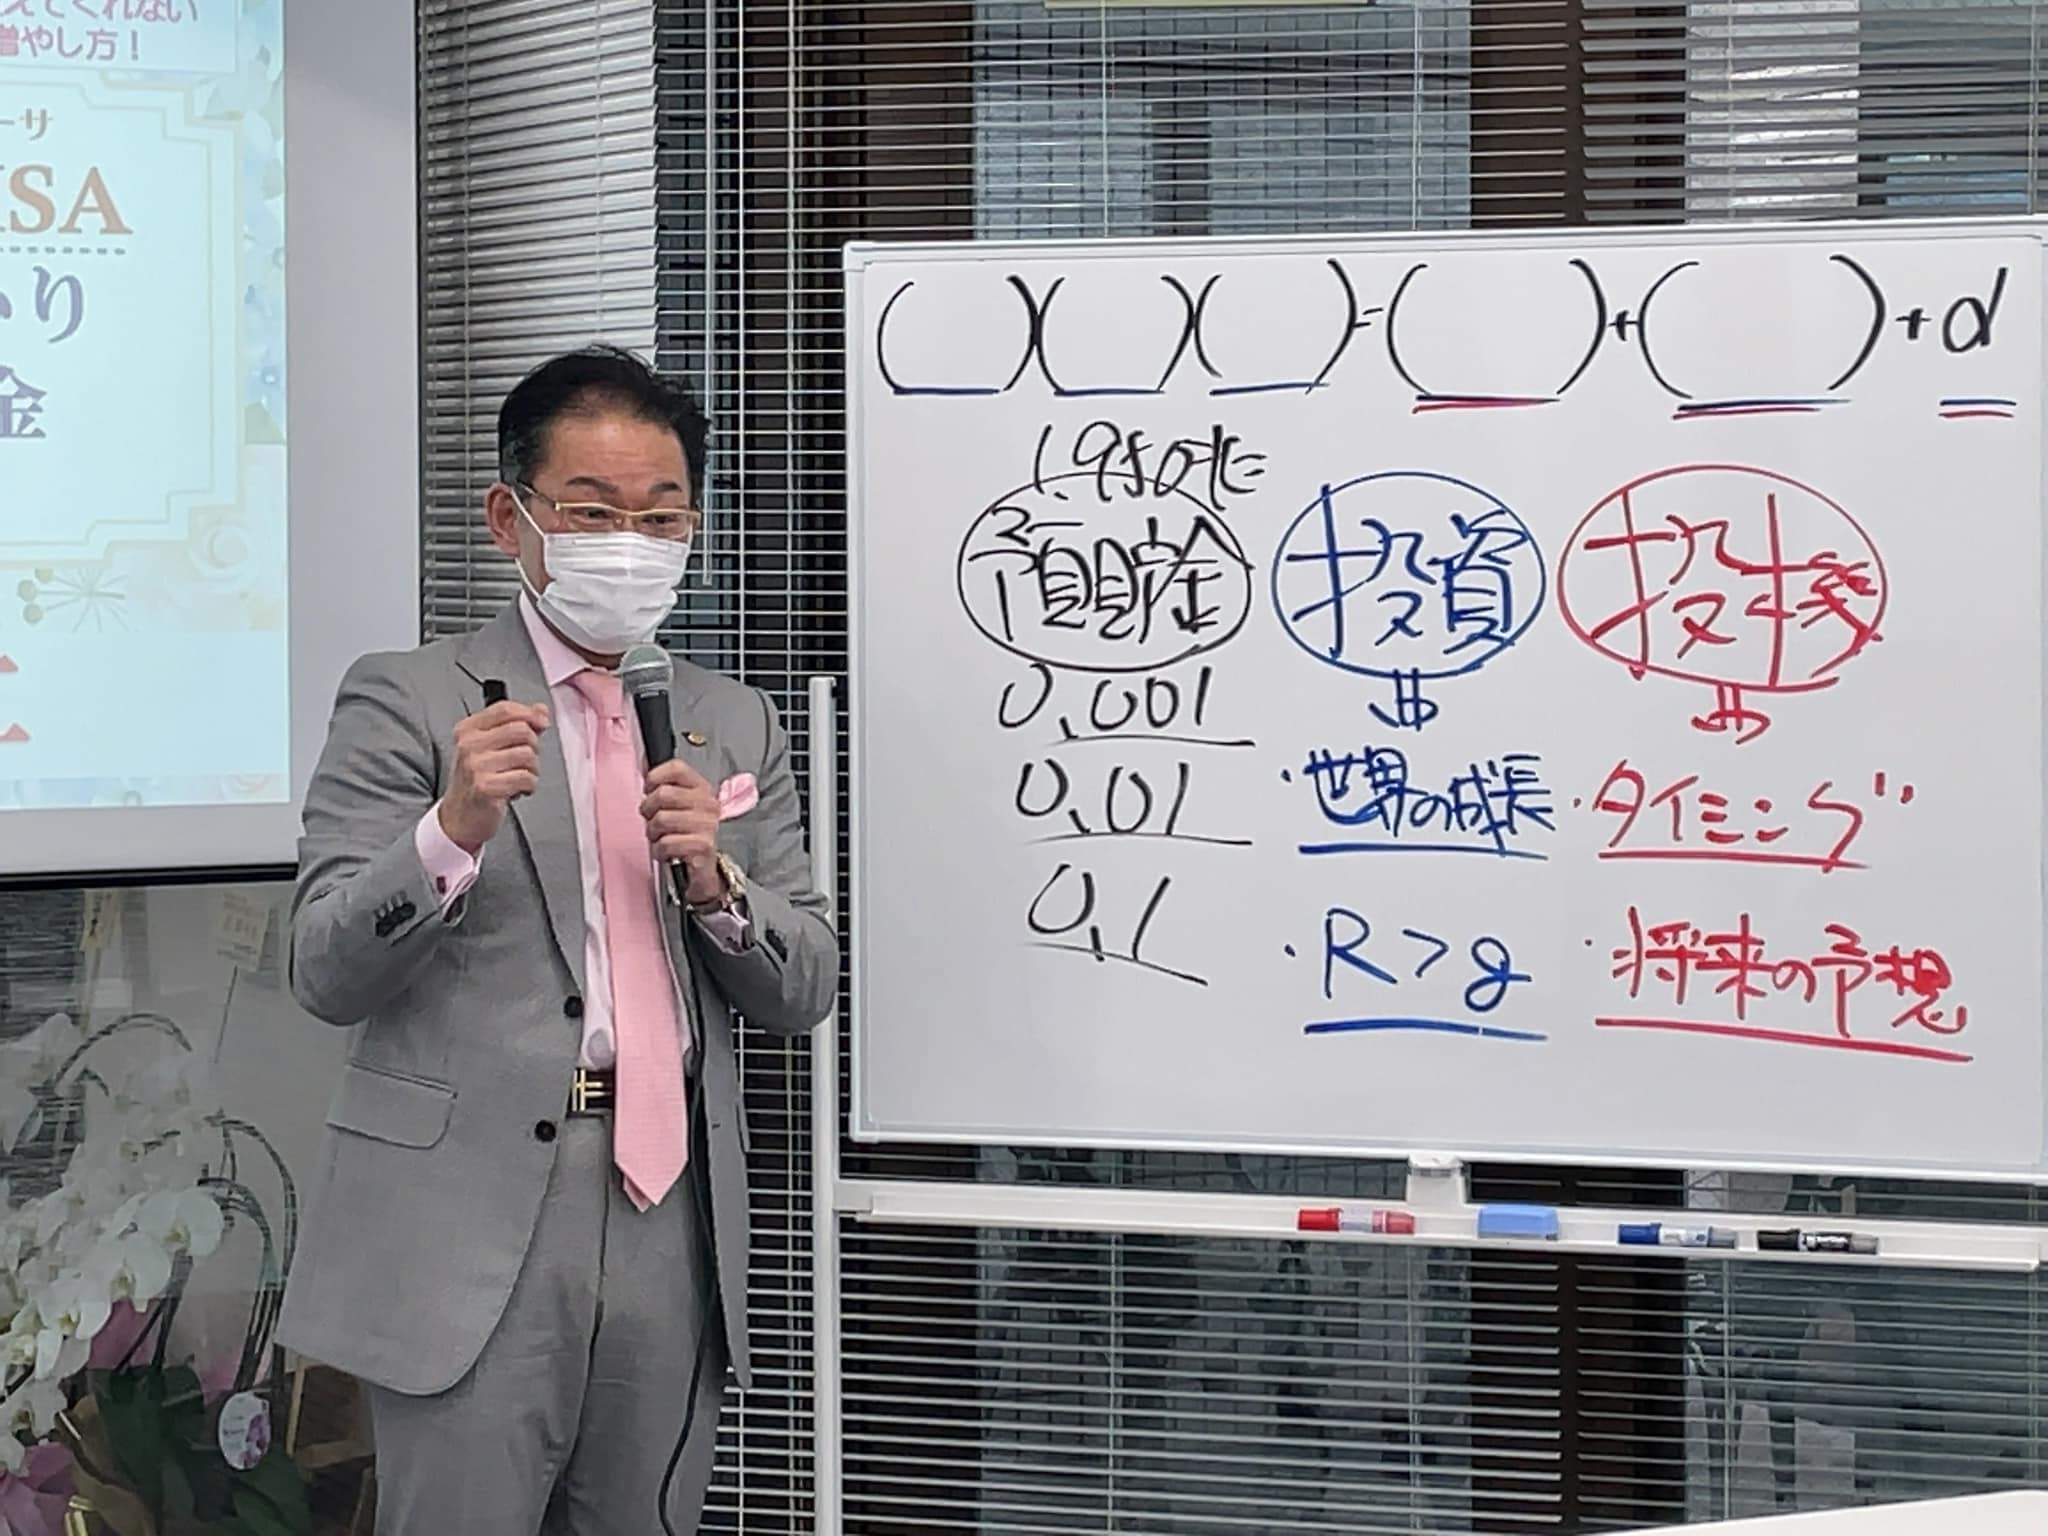 えてくれない
増やし方!
ーサ
ISA
り
金
( )( )( )=( )+( )+α
預貯金
0.001
0.01
0.1
投資
・世界の成長
・R>g
投機
・タイミング
・将来の予想